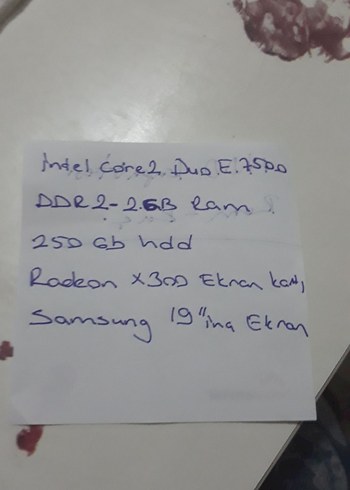 intel core2 Duo E.7500
DDR2-2.GB Ram
250 Gb hdd
Radeon x300 Ekran kartı
Samsung 19"inç Ekran